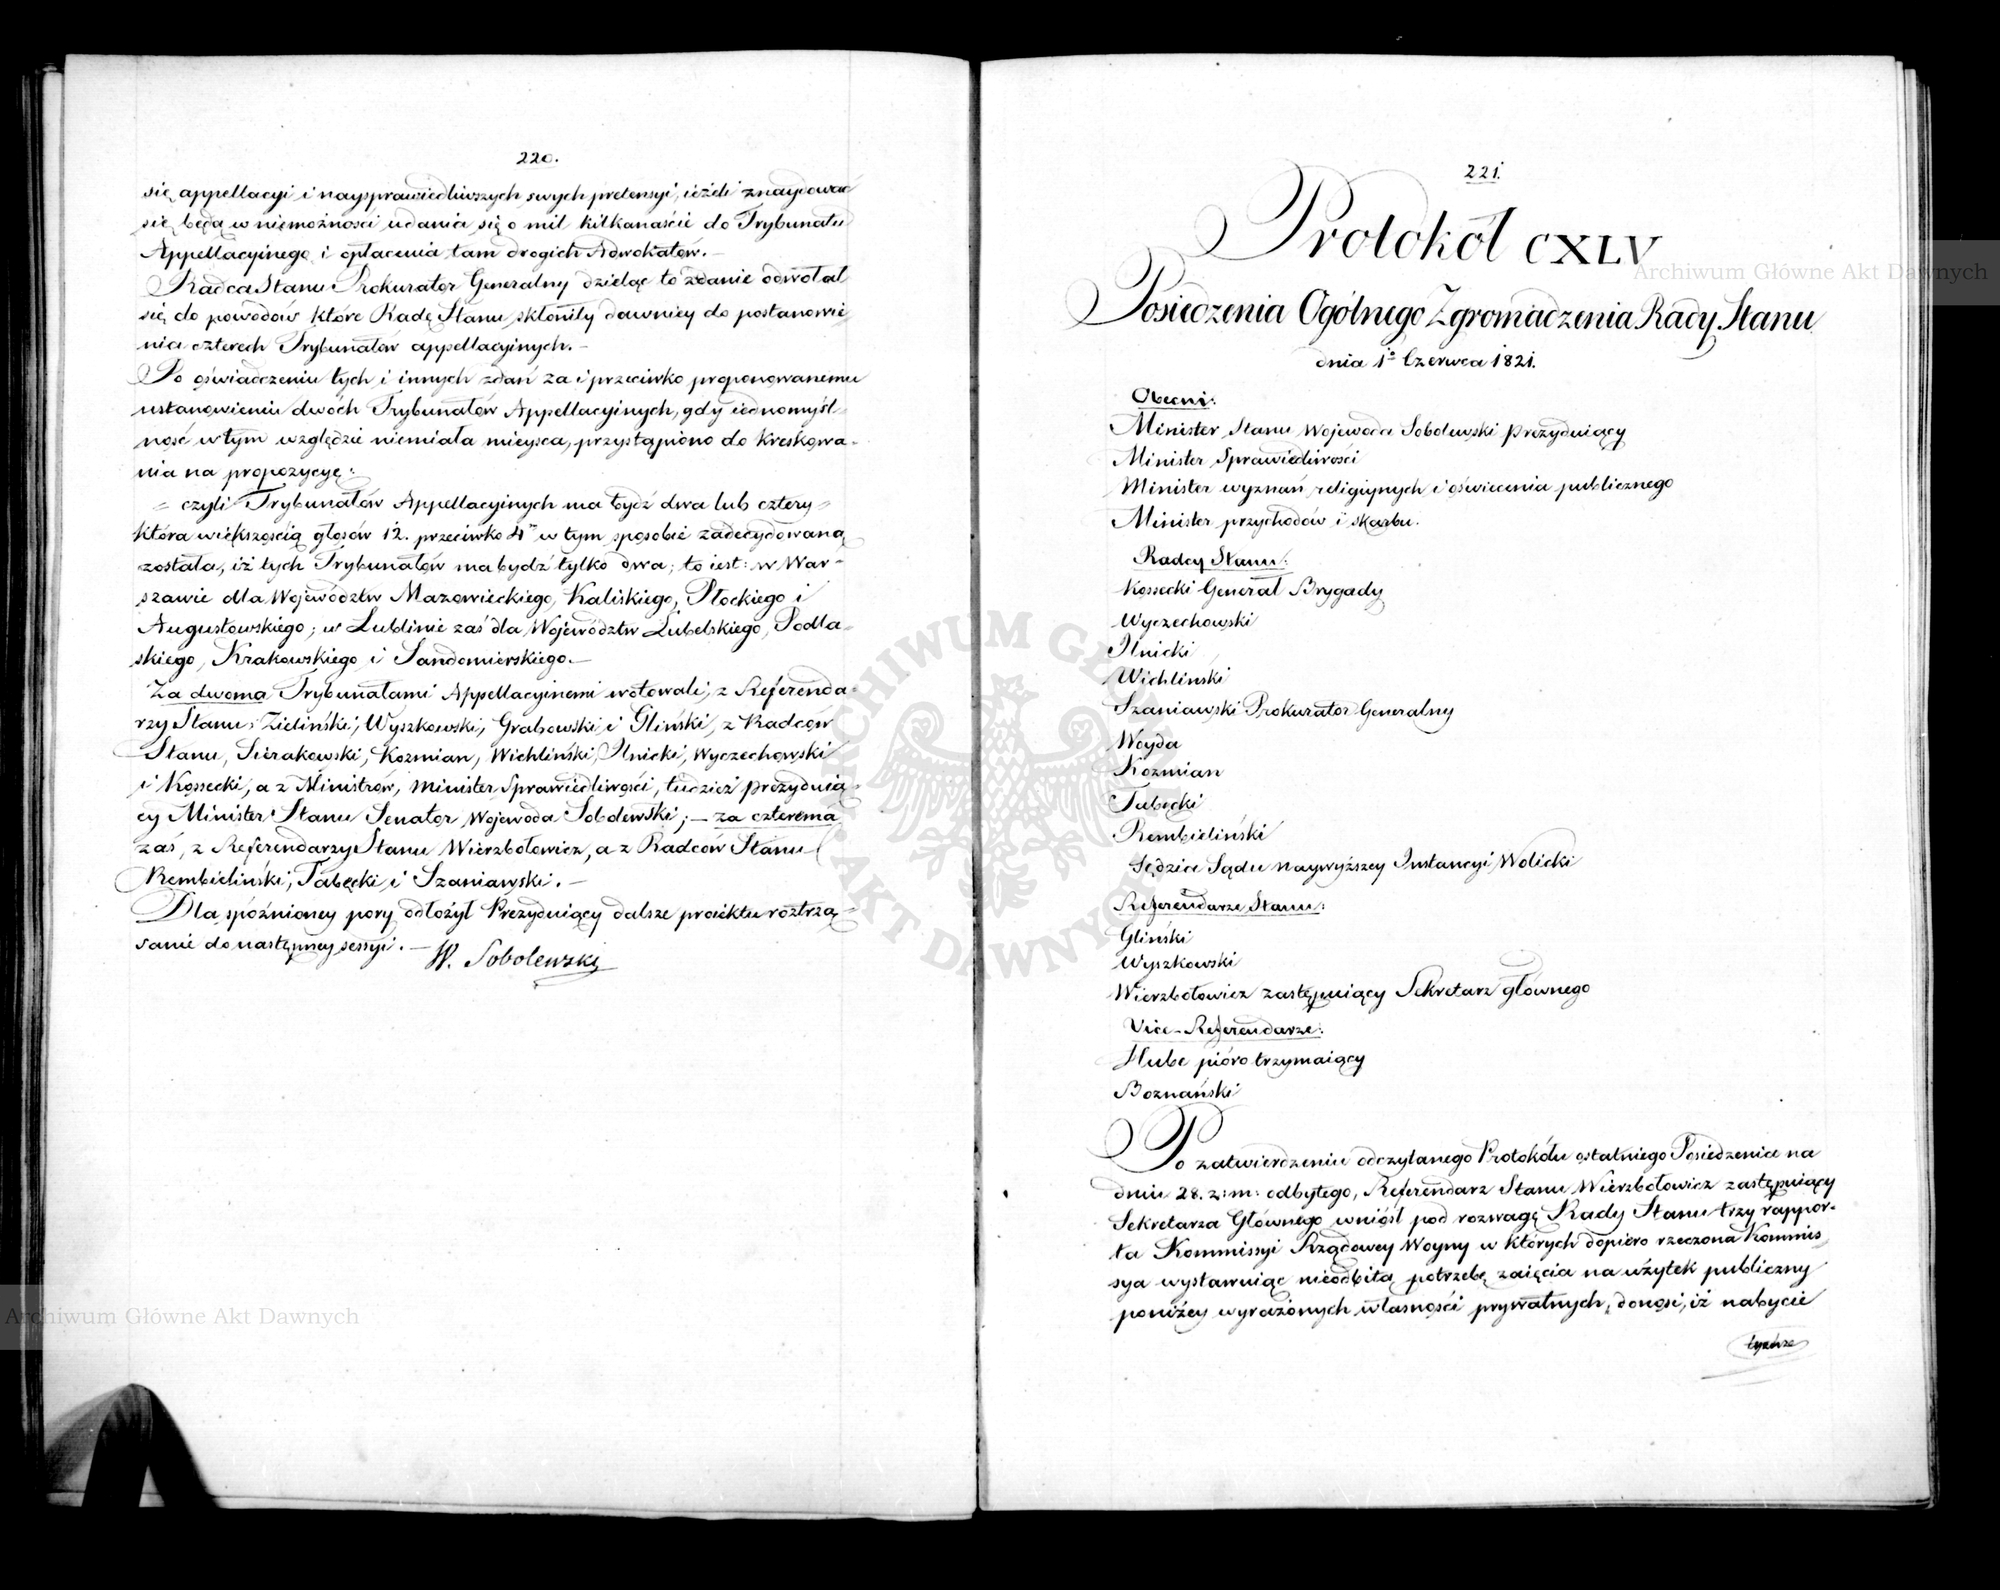 220.
się appellacyi i naysprawiedliwszych swych pretensyi, ieżeli znaydować
się będą w niemożności udania się o mil kilkanaście do Trybunału
Appellacyinego i opłacenia tam drogich Adwokatów. —
Radca Stanu Prokurator Generalny dzieląc to zdanie odwołał
się do powodów które Radę Stanu skłoniły dawniey do postanowie-
nia czterech Trybunałów appellacyinych. —
Po oświadczeniu tych i innych zdań za i przeciwko proponowanemu
ustanowieniu dwóch Trybunałów Appellacyinych, gdy iednomyśl-
ność w tym względzie niemiała mieysca, przystąpiono do kreskowa-
nia na propozycyę:
= czyli Trybunałów Appellacyinych ma bydź dwa lub cztery =
która większością głosów 12. przeciwko 4m w tym sposobie zadecydowaną
została, iż tych Trybunałów ma bydź tylko dwa; to iest: w War-
szawie dla Województw Mazowieckiego, Kaliskiego, Płockiego i
Augustowskiego; w Lublinie zaś dla Województw Lubelskiego, Podla-
skiego, Krakowskiego i Sandomierskiego. —
Za dwoma Trybunałami Appellacyinemi wotowali, z Referenda-
rzy Stanu: Zieliński, Wyszkowski, Grabowski i Gliński, z Radców
Stanu, Sierakowski, Kozmian, Wichliński, Ilnicki, Wyczechowski
i Kossecki, a z Ministrów, Minister Sprawiedliwości, tudzież prezyduią-
cy Minister Stanu Senator Wojewoda Sobolewski; — za czterema
zaś, z Referendarzy Stanu Wierzbołowicz, a z Radców Stanu
Rembieliński, Tabęcki i Szaniawski. —
Dla spóźnioney pory odłożył Prezyduiący dalsze proiektu roztrzą-
sanie do następney sessyi. —
W. Sobolewski
221.
Protokół CXLV
Posiedzenia Ogólnego Zgromadzenia Rady Stanu
dnia 1o Czerwca 1821.
Obecni:
Minister Stanu Wojewoda Sobolewski prezyduiący
Minister Sprawiedliwości
Minister wyznań religiynych i oświecenia publicznego
Minister przychodów i skarbu.
Radcy Stanu:
Kossecki Generał Brygady
Wyczechowski
Ilnicki
Wichliński
Szaniawski Prokurator Generalny
Woyda
Kozmian
Tabęcki
Rembieliński
Sędzia Sądu naywyższey Instancyi Wolicki
Referendarze Stanu:
Gliński
Wyszkowski
Wierzbołowicz zastępuiący Sekretarz głównego
Vice-Referendarze:
Hube pióro trzymaiący
Boznański
Po zatwierdzeniu odczytanego Protokółu ostatniego Posiedzenia na
dniu 28. z: m: odbytego, Referendarz Stanu Wierzbołowicz zastępuiący
Sekretarza Głównego wniósł pod rozwagę Rady Stanu trzy rappor-
ta Kommissyi Rządowey Woyny w których dopiero rzeczona Kommis-
sya wystawuiąc nieodbitą potrzebę zaięcia na użytek publiczny
poniżey wyrażonych własności prywatnych, donosi, iż nabycie
tychże
Archiwum Główne Akt Dawnych
Archiwum Główne Akt Dawnych
ARCHIWUM GŁÓWNE AKT DAWNYCH